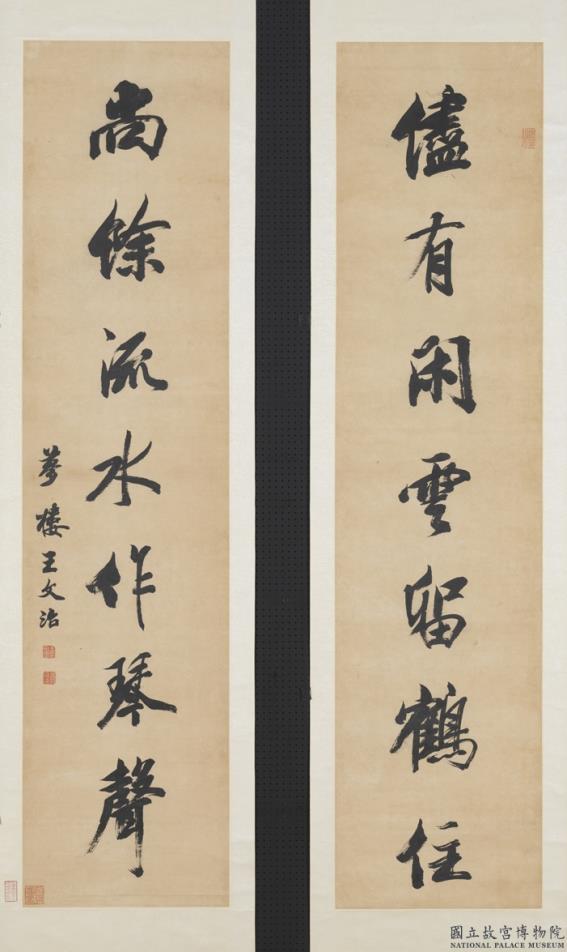 儘有閑雲留鶴住
尚餘流水作琴聲
夢樓王文治
國立故宮博物院
NATIONAL PALACE MUSEUM